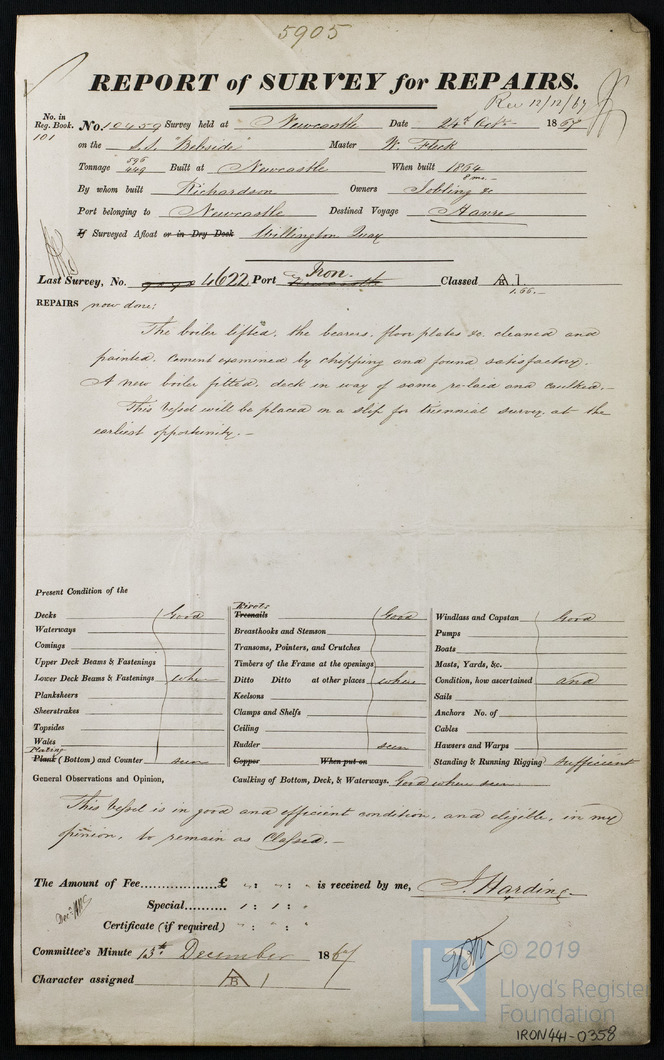 5905
REPORT of SURVEY for REPAIRS.
Rec 12/12/67
No. in
Reg. Book.
101
No. 10459 Survey held at Newcastle Date 24th Octr 1867
on the S.S. "Bebside" Master W. Fleck
Tonnage 596 449 Built at Newcastle When built 1864
8 mo.-
By whom built Richardson Owners Jobling &c
Port belonging to Newcastle Destined Voyage Havre
If Surveyed Afloat or in Dry Dock Willington Quay
Iron.
Last Survey, No. 4622 Port Newcastle Classed A 1.
1.66.-
REPAIRS now done;
The boiler lifted, the bearers, floor plates &c. cleaned and
painted. Cement examined by chipping and found satisfactory.
A new boiler fitted, deck in way of same re-laid and caulked.-
This Vessel will be placed on a slip for triennial survey at the
earliest opportunity.-
Present Condition of the
Decks Good
Waterways
Comings
Upper Deck Beams & Fastenings
Lower Deck Beams & Fastenings where
Planksheers
Sheerstrakes
Topsides
Wales
Plating
Plank (Bottom) and Counter seen
Rivets
Treenails Good
Breasthooks and Stemson
Transoms, Pointers, and Crutches
Timbers of the Frame at the openings
Ditto Ditto at other places where
Keelsons
Clamps and Shelfs
Ceiling
Rudder seen
Copper When put on
Windlass and Capstan Good
Pumps
Boats
Masts, Yards, &c.
Condition, how ascertained and
Sails
Anchors No. of
Cables
Hawsers and Warps
Standing & Running Rigging sufficient
General Observations and Opinion, Caulking of Bottom, Deck, & Waterways. Good where seen
This Vessel is in good and efficient condition, and eligible, in my
opinion, to remain as Classed.-
The Amount of Fee............£ " : " : " is received by me, J. Harding
Special.......... 1 : 1 : "
Certificate (if required) " : " : "
Committee's Minute 13th December 1867
Character assigned A 1
© 2019
Lloyd's Register
Foundation
IRON441-0358